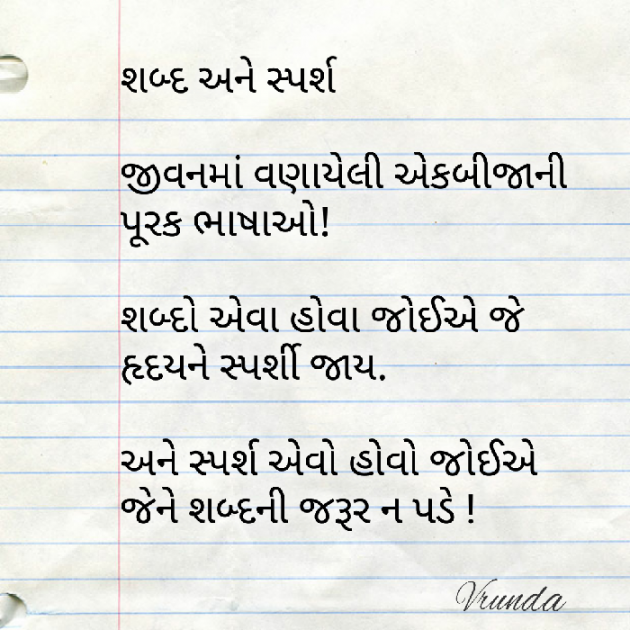 શબ્દ અને સ્પર્શ
જીવનમાં વણાયેલી એકબીજાની
પૂરક ભાષાઓ!
શબ્દો એવા હોવા જોઈએ જે
હૃદયને સ્પર્શી જાય.
અને સ્પર્શ એવો હોવો જોઈએ
જેને શબ્દની જરૂર ન પડે !
Vrunda